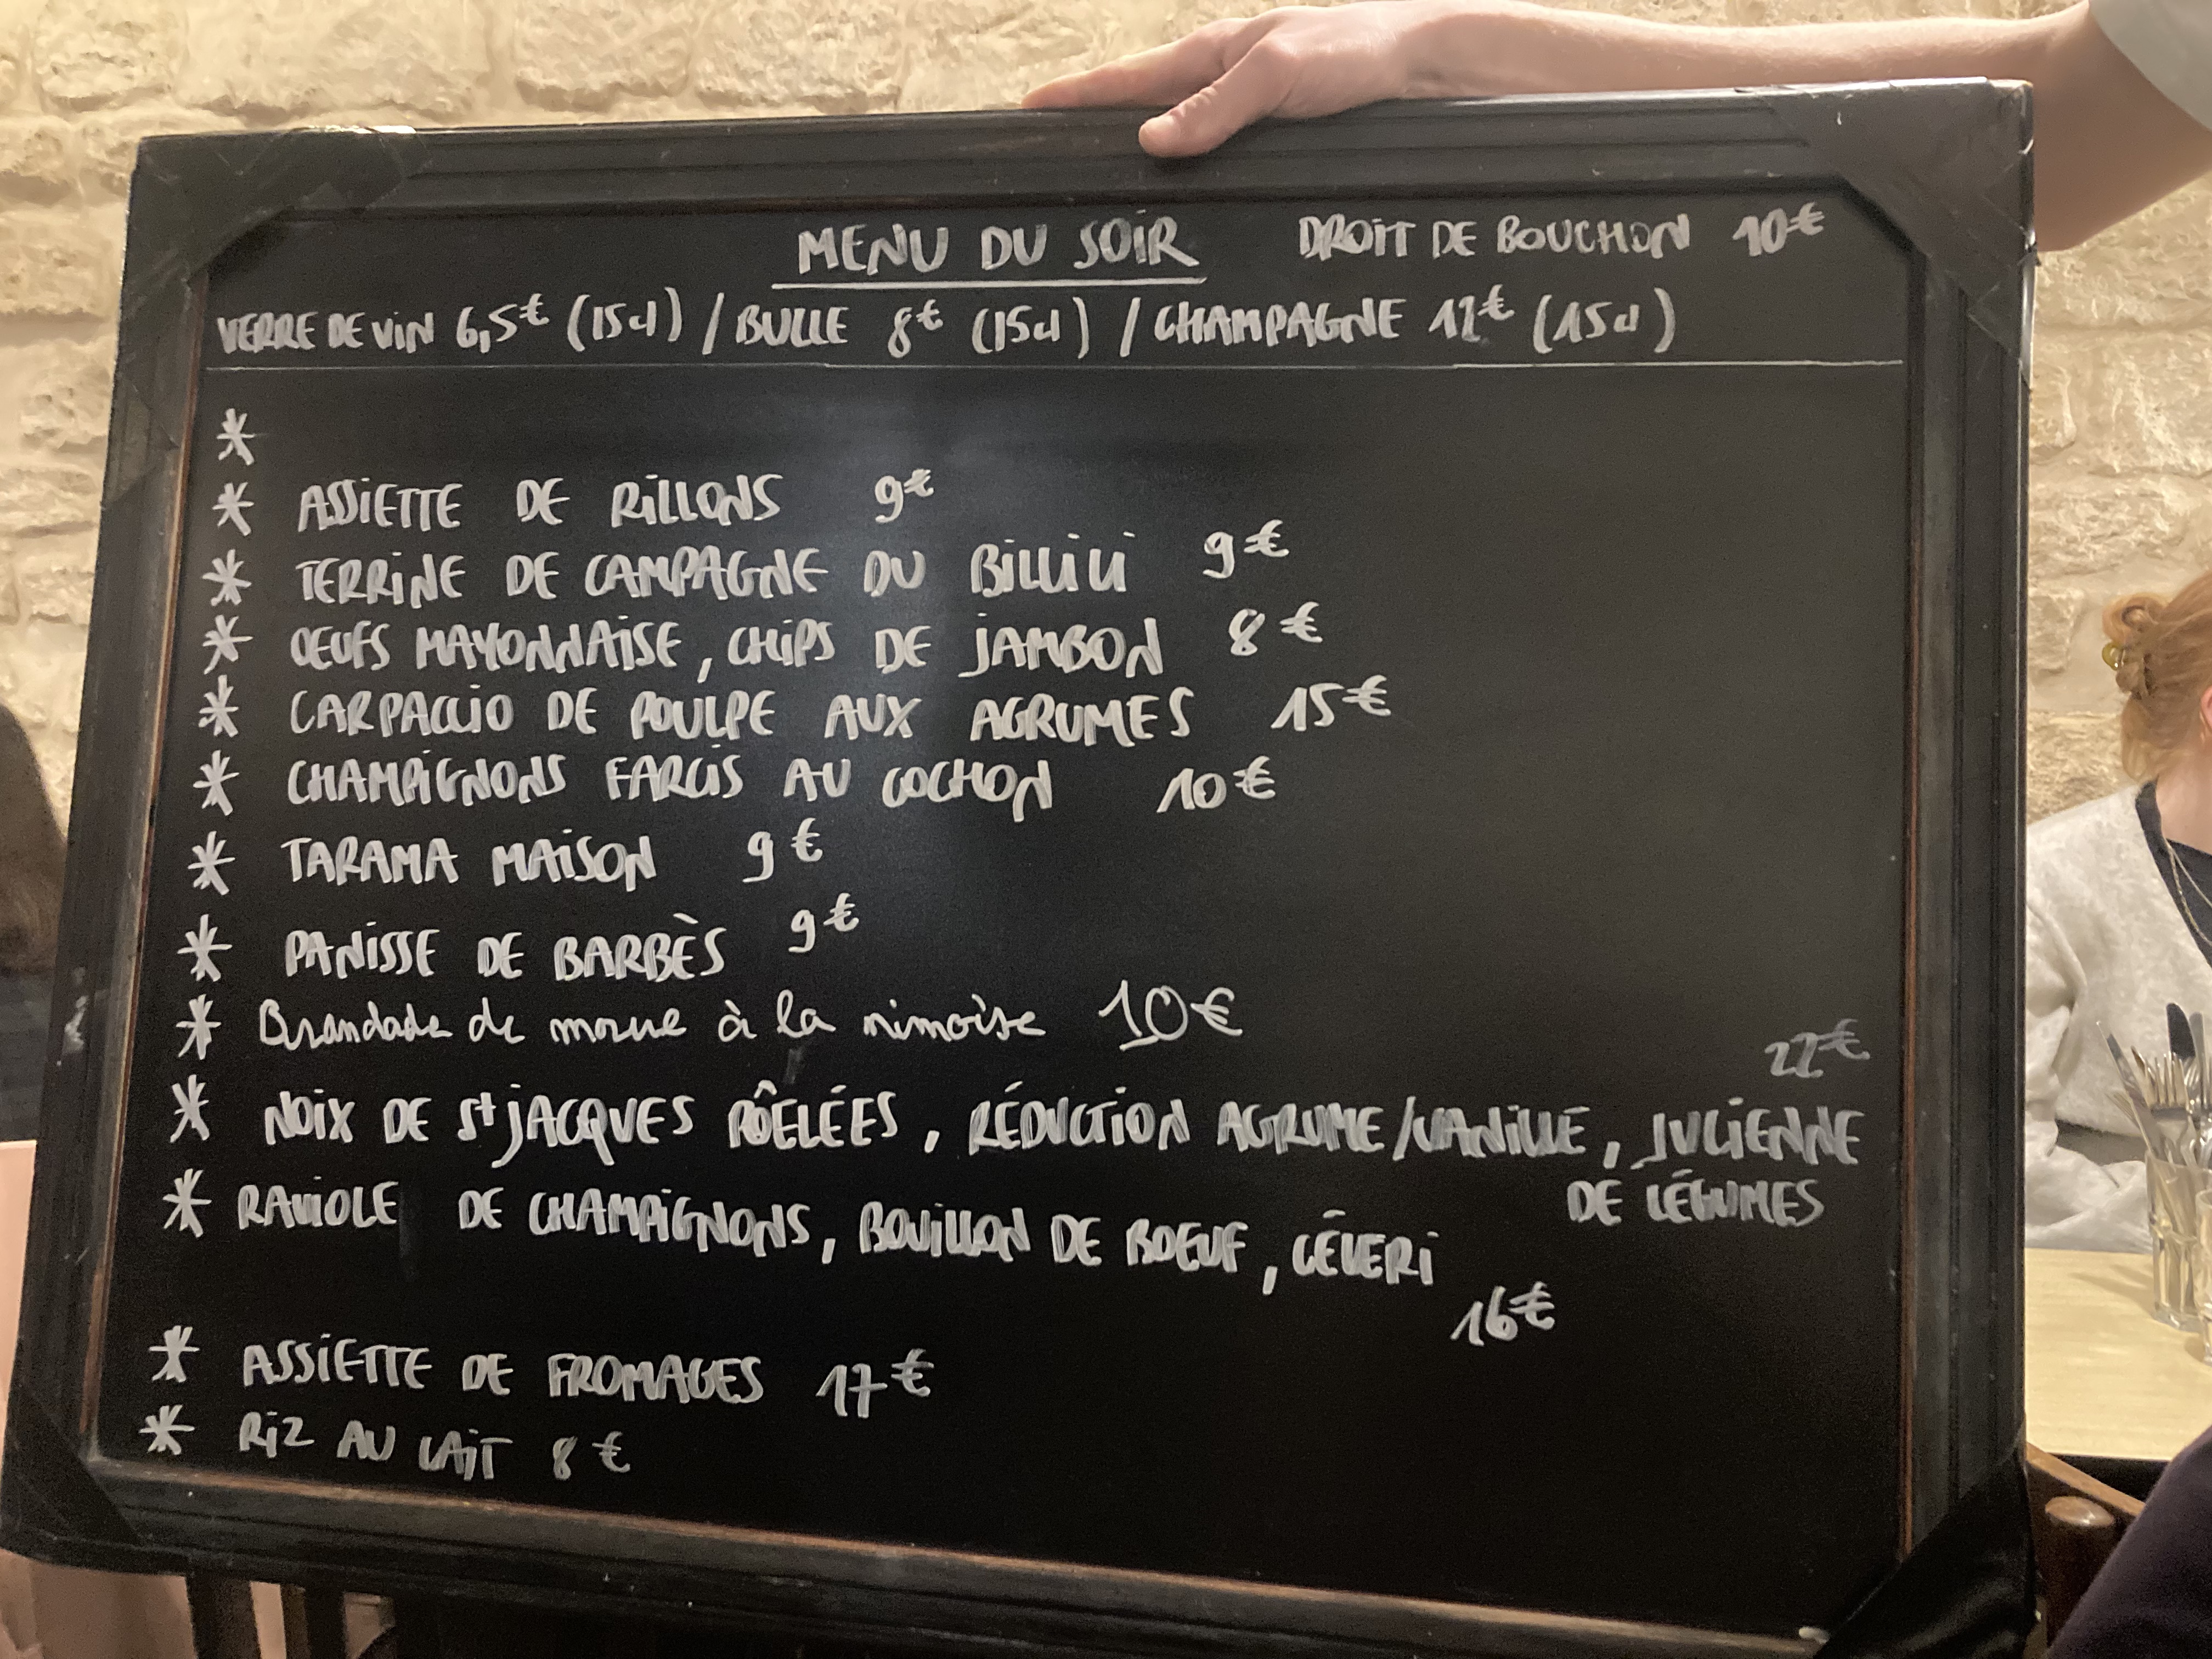 MENU DU SOIR DROIT DE BOUCHON 10€
VERRE DE VIN 6,5€ (15cl) / BULLE 8€ (15cl) / CHAMPAGNE 12€ (15cl)
*
* ASSIETTE DE RILLONS 9€
* TERRINE DE CAMPAGNE DU BILLILI 9€
* OEUFS MAYONNAISE, CHIPS DE JAMBON 8€
* CARPACCIO DE POULPE AUX AGRUMES 15€
* CHAMPIGNONS FARCIS AU COCHON 10€
* TARAMA MAISON 9€
* PANISSE DE BARBÈS 9€
* Brandade de morue à la nimoise 10€
22€
* NOIX DE St JACQUES PÔELÉES, RÉDUCTION AGRUME/VANILLE, JULIENNE
DE LÉGUMES
* RAVIOLE DE CHAMPIGNONS, BOUILLON DE BOEUF, CÉLERI
16€
* ASSIETTE DE FROMAGES 17€
* RIZ AU LAIT 8€